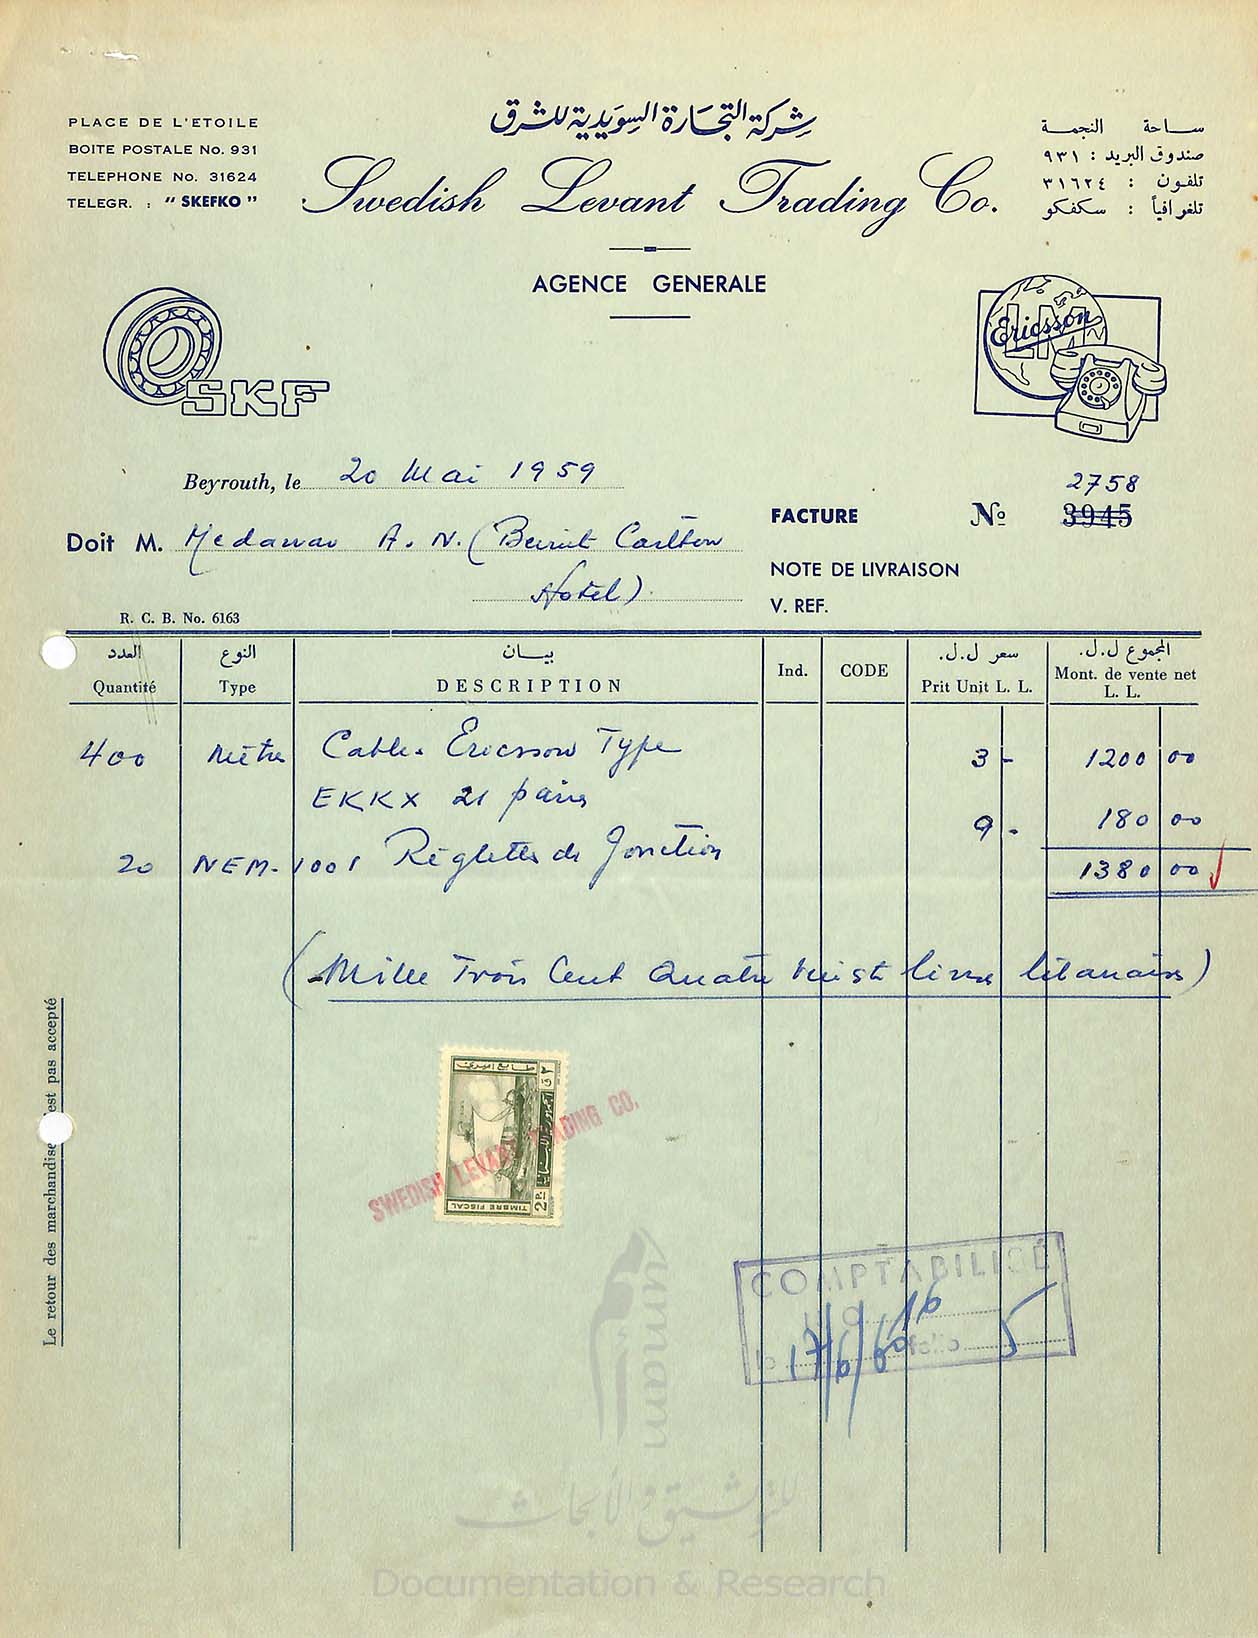 PLACE DE L'ETOILE
BOITE POSTALE No. 931
TELEPHONE No. 31624
TELEGR. : " SKEFKO "
شركة التجارة السويدية للشرق
Swedish Levant Trading Co.
ساحة النجمة
صندوق البريد : ٩٣١
تلفون : ٣١٦٢٤
تلغرافياً : سكفكو
AGENCE GENERALE
SKF
Ericsson
LM
Beyrouth, le 20 Mai 1959
Doit M. Medawar A. N. (Beirut Carlton
Hotel)
2758
FACTURE No 3945
NOTE DE LIVRAISON
V. REF.
R. C. B. No. 6163
العدد النوع بيـــان سعر ل.ل. المجموع ل.ل.
Quantité Type DESCRIPTION Ind. CODE Prit Unit L. L. Mont. de vente net L. L.
400 Mètre Cable Ericsson Type 3 - 1200 00
EKKX 21 paires
9 - 180 00
20 NEM-1001 Réglettes de Jonction
1380 00
(Mille Trois Cent Quatre Vingt livres libanaises)
Le retour des marchandise est pas accepté
طابع اميري
الجمهورية اللبنانية
٢ ق
2 P.
TIMBRE FISCAL
SWEDISH LEVANT TRADING CO.
COMPTABILISÉ
No 16
le 17/6/60 folio 5
umam
للتوثيق والأبحاث
Documentation & Research